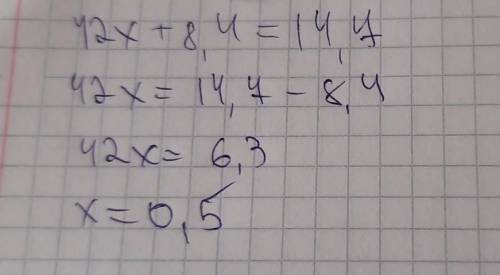 42x + 8,4 = 14,7
42x = 14,7 - 8,4
42x = 6,3
x = 0,5